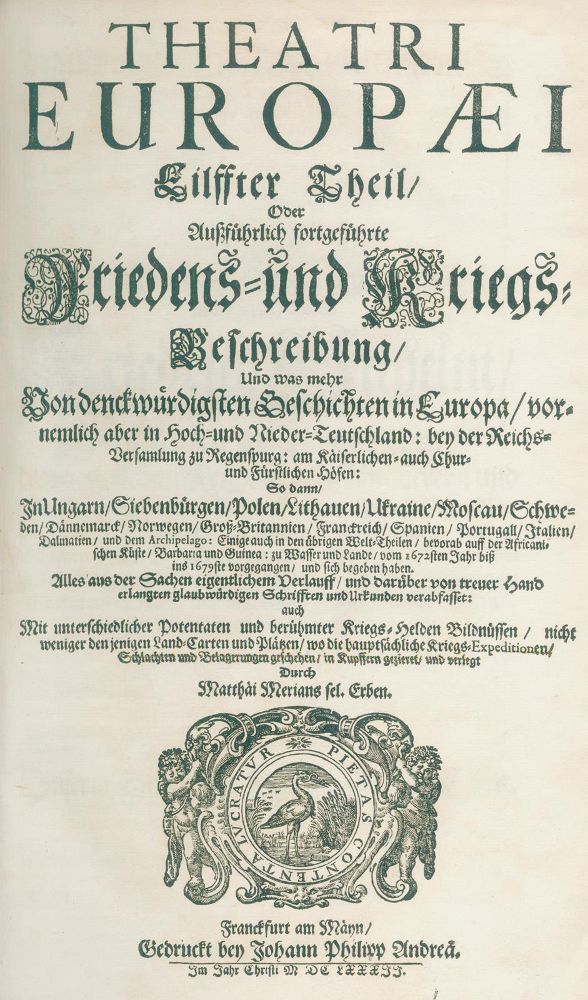 THEATRI
EUROPÆI
Eilffter Theil/
Oder
Außführlich fortgeführte
Friedens-und Kriegs-
Beschreibung/
Und was mehr
Von denckwürdigsten Geschichten in Europa/ vor-
nemlich aber in Hoch-und Nieder-Teutschland: bey der Reichs-
Versamlung zu Regenspurg: am Käiserlichen-auch Chur-
und Fürstlichen Höfen:
So dann/
In Ungarn/Siebenbürgen/Polen/Lithauen/Ukraine/Moscau/Schwe-
den/Dännemarck/Norwegen/Groß-Britannien/Franckreich/Spanien/Portugall/Italien/
Dalmatien/ und dem Archipelago: Einige auch in den übrigen Welt-Theilen/ bevorab auff der Africani-
schen Küste/ Barbaria und Guinea: zu Wasser und Lande/ vom 1672sten Jahr biß
ins 1679ste vorgegangen/ und sich begeben haben.
Alles aus der Sachen eigentlichem Verlauff/ und darüber von treuer Hand
erlangten glaubwürdigen Schrifften und Urkunden verabfasset:
auch
Mit unterschiedlicher Potentaten und berühmter Kriegs-Helden Bildnüssen/ nicht
weniger den jenigen Land-Carten und Plätzen/ wo die hauptsächliche Kriegs-Expeditionen/
Schlachten und Belagerungen geschehen/ in Kupffern gezieret/ und verlegt
Durch
Matthäi Merians sel. Erben.
PIETAS CONTENTA LUCRATVR
Franckfurt am Mäyn/
Gedruckt bey Johann Philipp Andreä.
Im Jahr Christi M DC LXXXII.